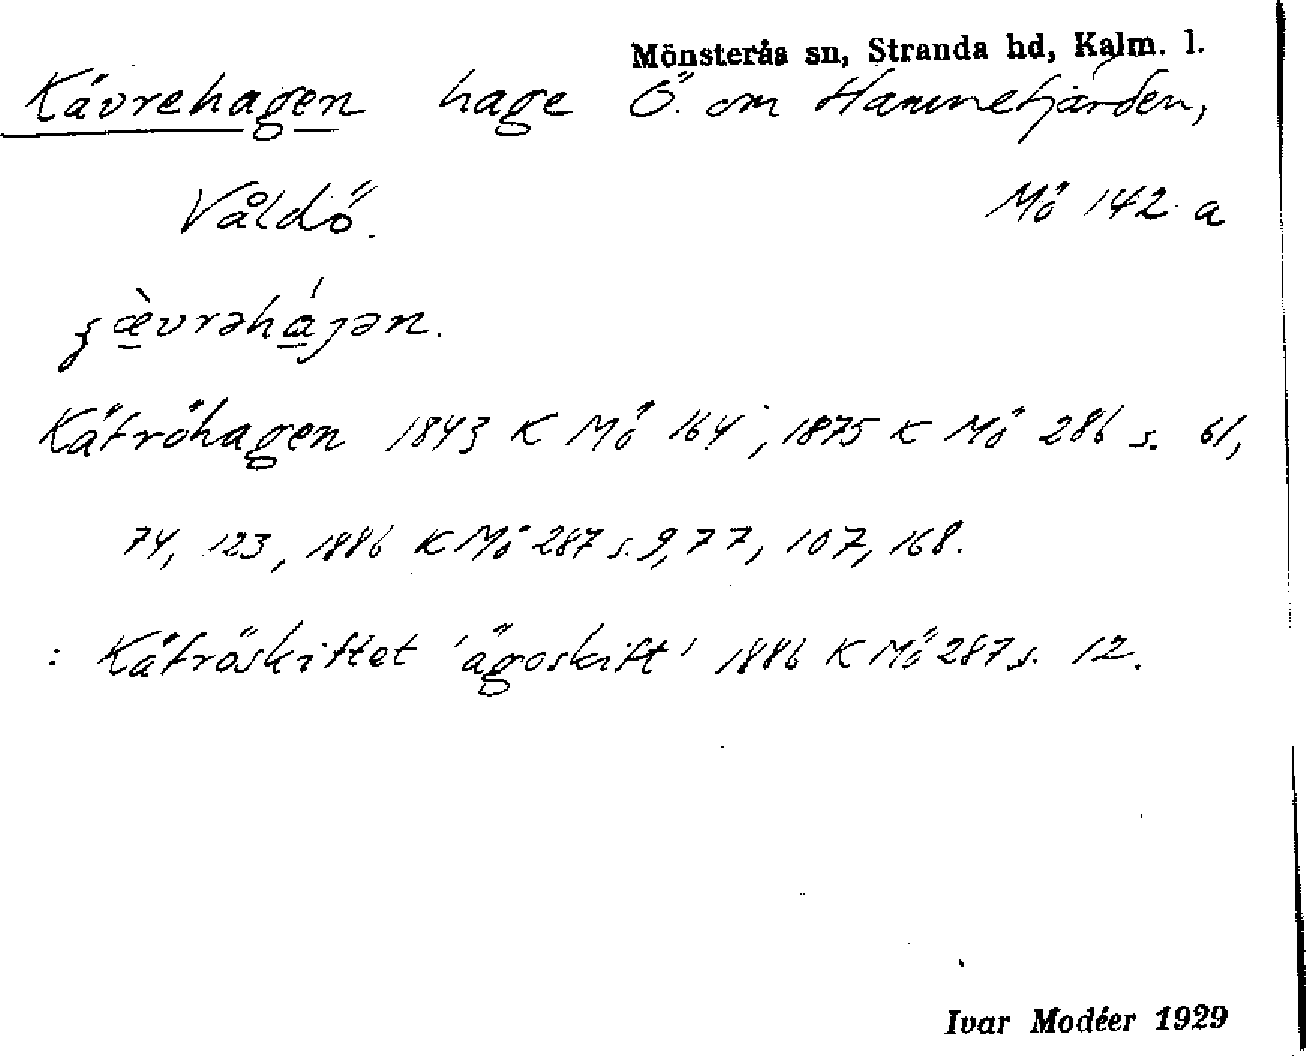 Mönsterås sn, Stranda hd, Kalm. l.
Kävrehagen hage Ö. om Hamnefjärden,
Våldö. Mö 142 a
ȿæ̀vrəhájən.
Käfröhagen 1843 K Mö 164, 1875 K Mö 286 s. 61,
74, 123, 1886 K Mö 287 s. 9, 77, 107, 168.
: Käfröskiftet 'ägoskift' 1886 K Mö 287 s. 12.
Ivar Modéer 1929